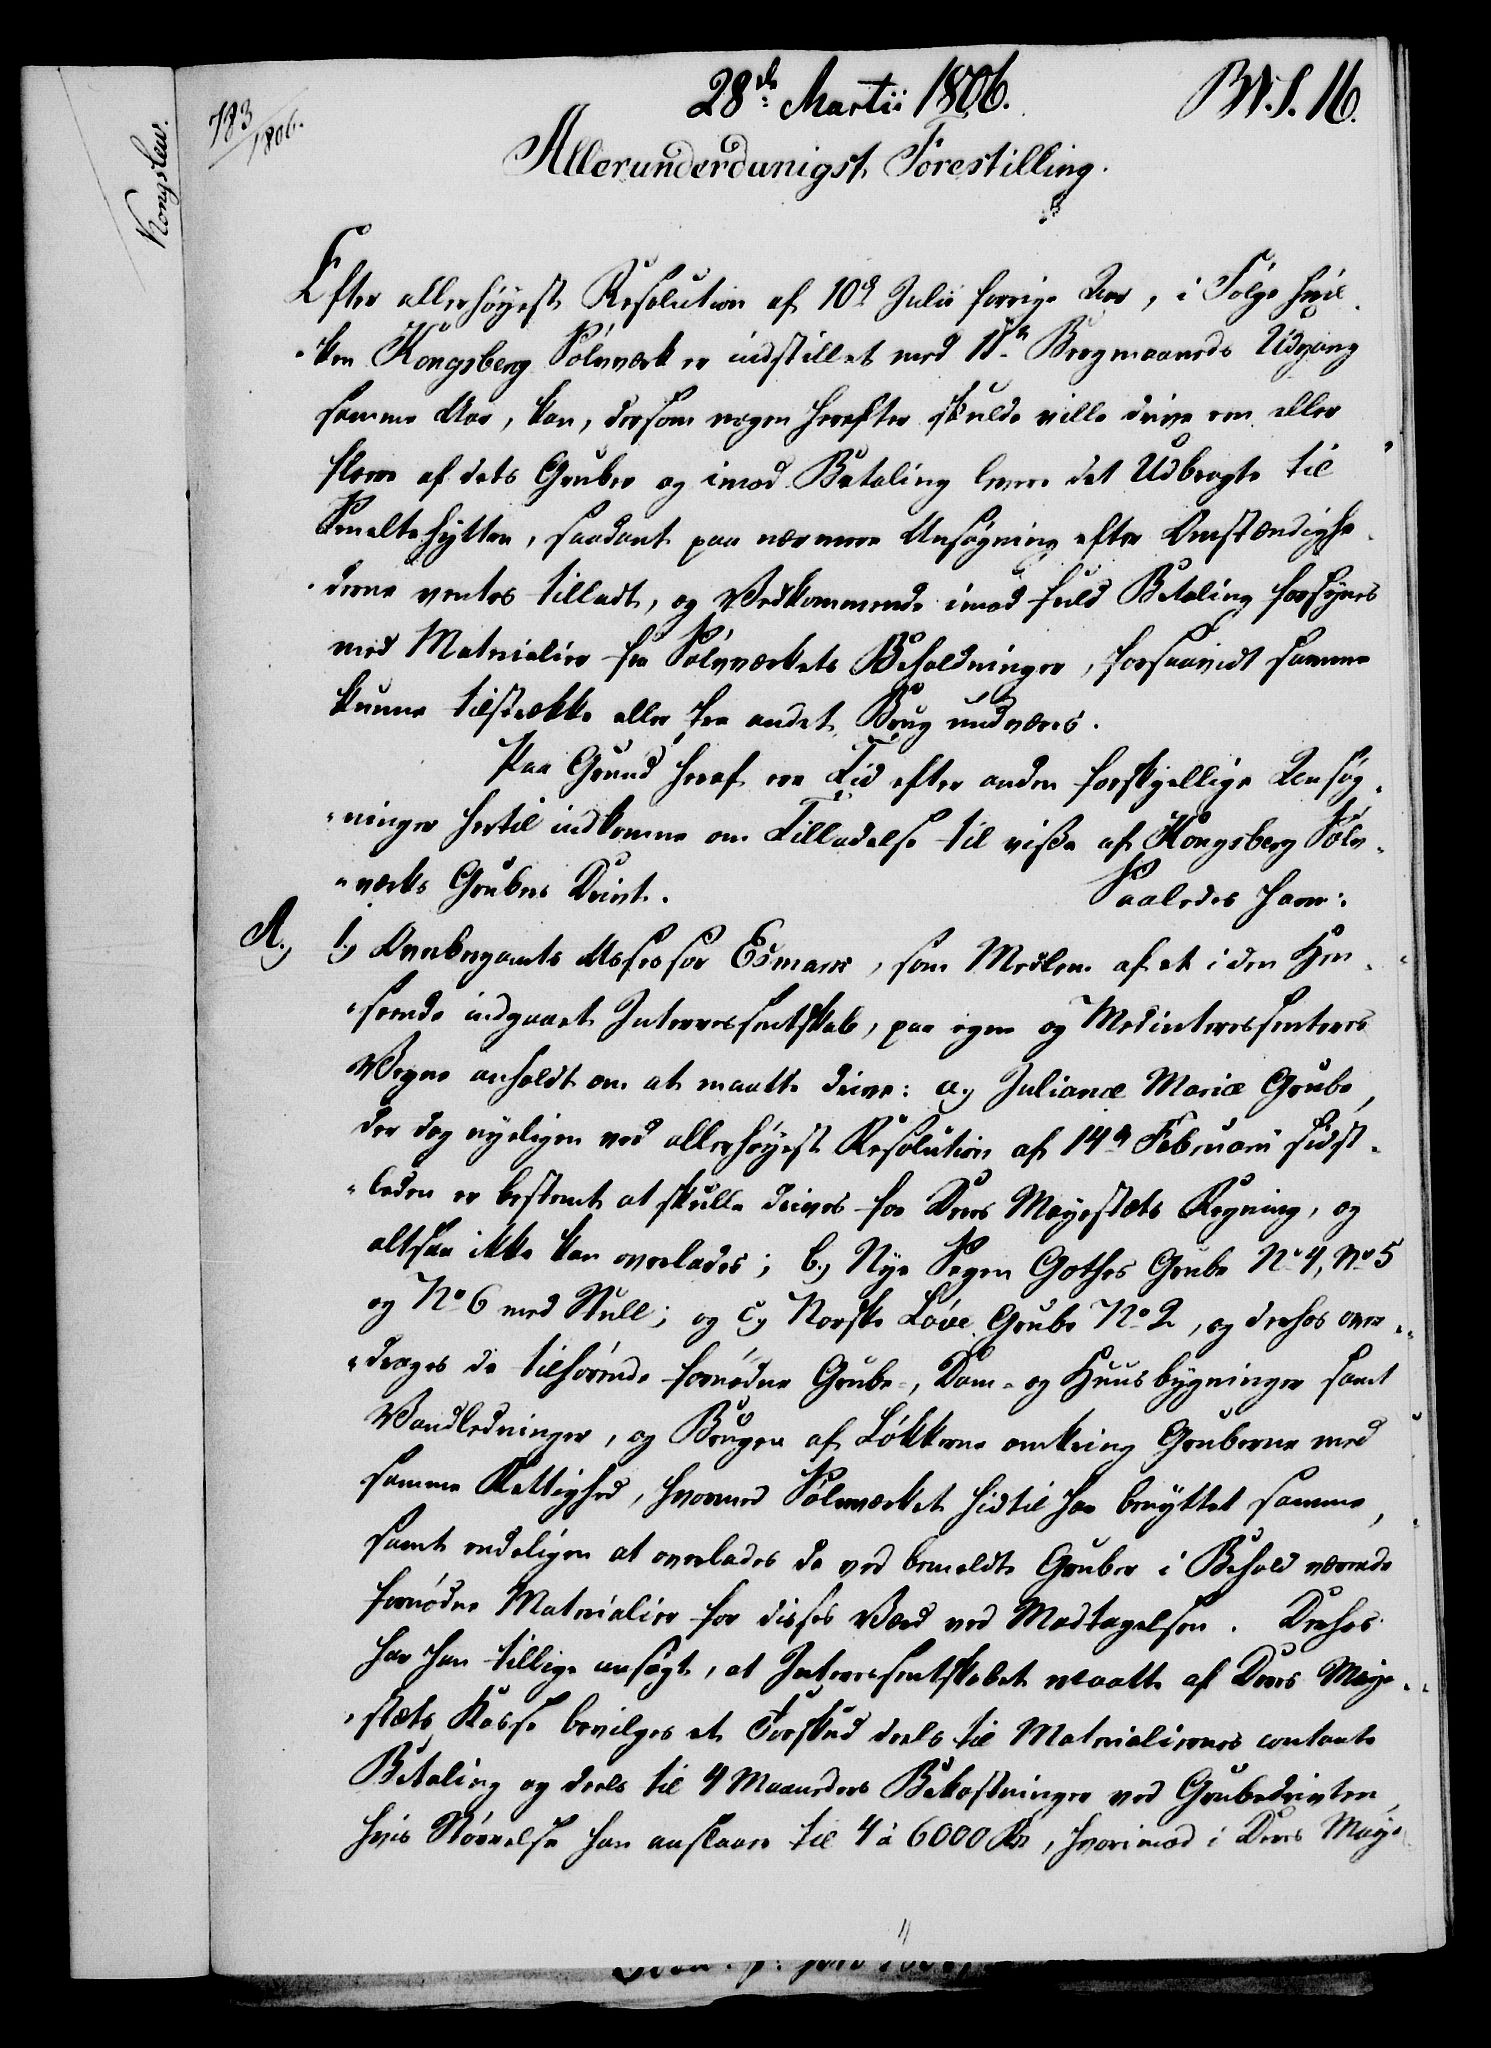 28de Martii 1806.
BW. S. 16.
783/1806.
Kongslew.
Allerunderdanigst Forestilling.
Efter allerhøyest Resolution af 10d Julii forrige Aar, i Følge hvil-
-ken Kongsberg Sølvværk er indstillet med 11te Bergmaaneds Udgang
samme Aar, kan, dersom nogen herefter skulde ville drive een eller
flere af dets Gruber og imod Betaling levere det Udbragte til
Smeltehytten, saadant paa nærmere Ansøgning efter Omstændighe-
-derne ventes tilladt, og Vedkommende imod fuld Betaling forsynes
med Materialier fra Sølvværkets Beholdninger, forsaavidt samme
kunne tilstrække eller fra andet Brug undværes.
Paa Grund heraf ere Tid efter anden forskjellige Ansøg-
-ninger hertil indkomne om Tilladelse til visse af Kongsberg Sølv-
-værks Grubers Drivt.
Saaledes have:
A.) 1.) Overbergamts Assessor Esmark, som Medlem af et i den Hen-
-seende indgaaet Interessentskab, paa egne og Medinteressenteres
Vegne anholdt om at maatte drive: a.) Juliane Mariæ Grube,
der dog nyeligen ved allerhøyest Resolution af 14de Februarii sidst-
-leden er bestemt at skulle drives for Deres Mayestæts Regning, og
altsaa ikke kan overlades; b.) Nye Segen Gottes Grube No 4, No 5
og No 6 med Stull; og c.) Norske Løve Grube No 2, og derhos over-
-drages de tilhørende fornødne Grube-, Dam- og Huusbygninger samt
Vandledninger, og Brugen af Løkkerne omkring Gruberne med
samme Rettighed, hvormed Sølvværket hidtil har benyttet samme,
samt endeligen at overlades de ved bemeldte Gruber i Behold værende
fornødne Materialier for disses Værd ved Modtagelsen. Derhos
har han tillige ansøgt, at Interessentskabet maatte af Deres Maye-
-stæts Kasse bevilges et Forskud deels til Materialiernes contante
Betaling og deels til 4 Maaneders Bekostninger ved Grubedrivten,
hvis Størrelse han anslaaer til 4 à 6000 Rd, hvorimod i Deres Maye-